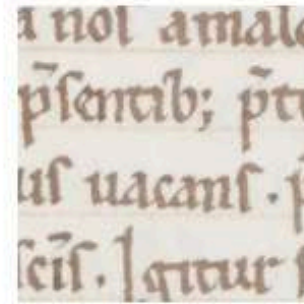 a noſ amal
p̄ſentib; p̄t
uſ uacanſ . p
ſci̅ſ . Igitur ſ